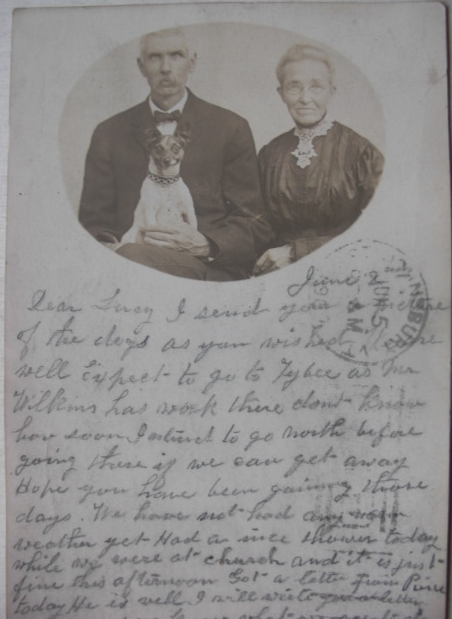 June 2nd
Dear Lucy I send you picture
of the dogs as you wished
well Expect to go to Tybee as Mr
Wilkins has work there dont know
how soon I intend to go north before
going there if we can get away
Hope you have been gaining these
days. We have not had any warm
weather yet Had a nice shower today
while we were at church and it is just
fine this afternoon Got a letter from
today He is well I will write you a letter
JUN 5
A M